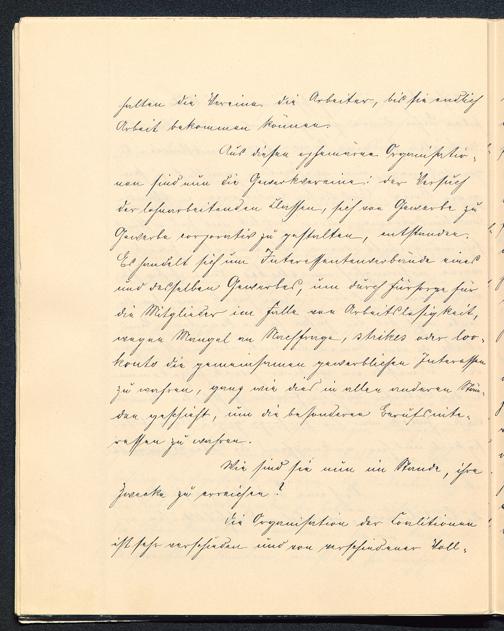 halten die Vereine die Arbeiter, bis sie endlich
Arbeit bekommen können.
Aus diesen ephemären Organisatio-
nen sind nun die Gewerkvereine: der Versuch
der lohnarbeitenden Klassen, sich von Gewerbe zu
Gewerbe corporativ zu gestalten, entstanden.
Es handelt sich um Interessentenverbände eines
und desselben Gewerbes, um durch Fürsorge für
die Mitglieder im Falle von Arbeitslosigkeit,
wegen Mangel an Nachfrage, strikes oder loo-
konts die gemeinsamen gewerblichen Interessen
zu wahren, ganz wie dies in allen anderen Stän-
den geschieht, um die besonderen Berufsinte-
ressen zu wahren.
Wie sind sie nun im Stande, ihre
Zwecke zu erreichen?
Die Organisation der Coalitionen
ist sehr verschieden und von verschiedener Voll-